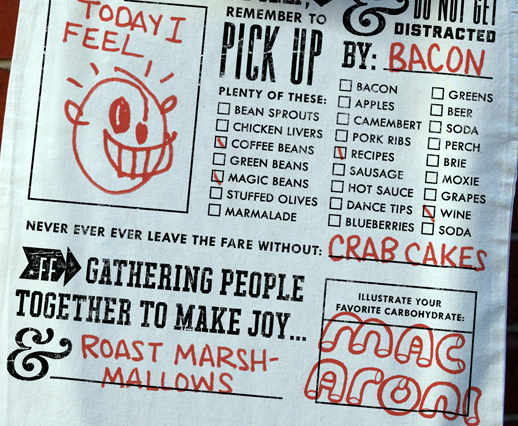 TODAY I
FEEL
REMEMBER TO
PICK UP
PLENTY OF THESE:
BEAN SPROUTS
CHICKEN LIVERS
COFFEE BEANS
GREEN BEANS
MAGIC BEANS
STUFFED OLIVES
MARMALADE
& DO NOT GET
DISTRACTED
BY: BACON
BACON
APPLES
CAMEMBERT
PORK RIBS
RECIPES
SAUSAGE
HOT SAUCE
DANCE TIPS
BLUEBERRIES
GREENS
BEER
SODA
PERCH
BRIE
MOXIE
GRAPES
WINE
SODA
NEVER EVER EVER LEAVE THE FARE WITHOUT: CRAB CAKES
GATHERING PEOPLE
TOGETHER TO MAKE JOY...
& ROAST MARSH-
MALLOWS
ILLUSTRATE YOUR
FAVORITE CARBOHYDRATE:
MAC
ARONI